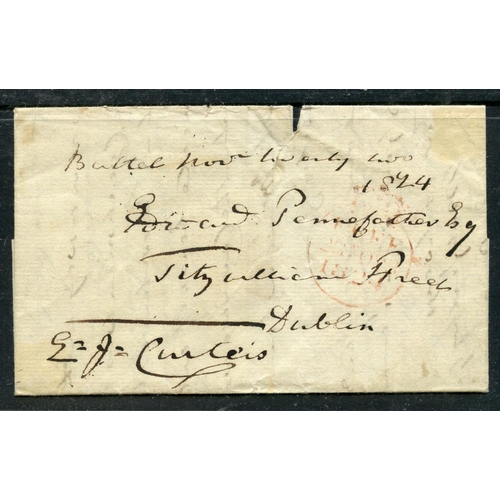 Battel Nov.r twenty two
1824
Edward Pennefather Esq
Fitzwilliam Street
Dublin
E= J= Curteis